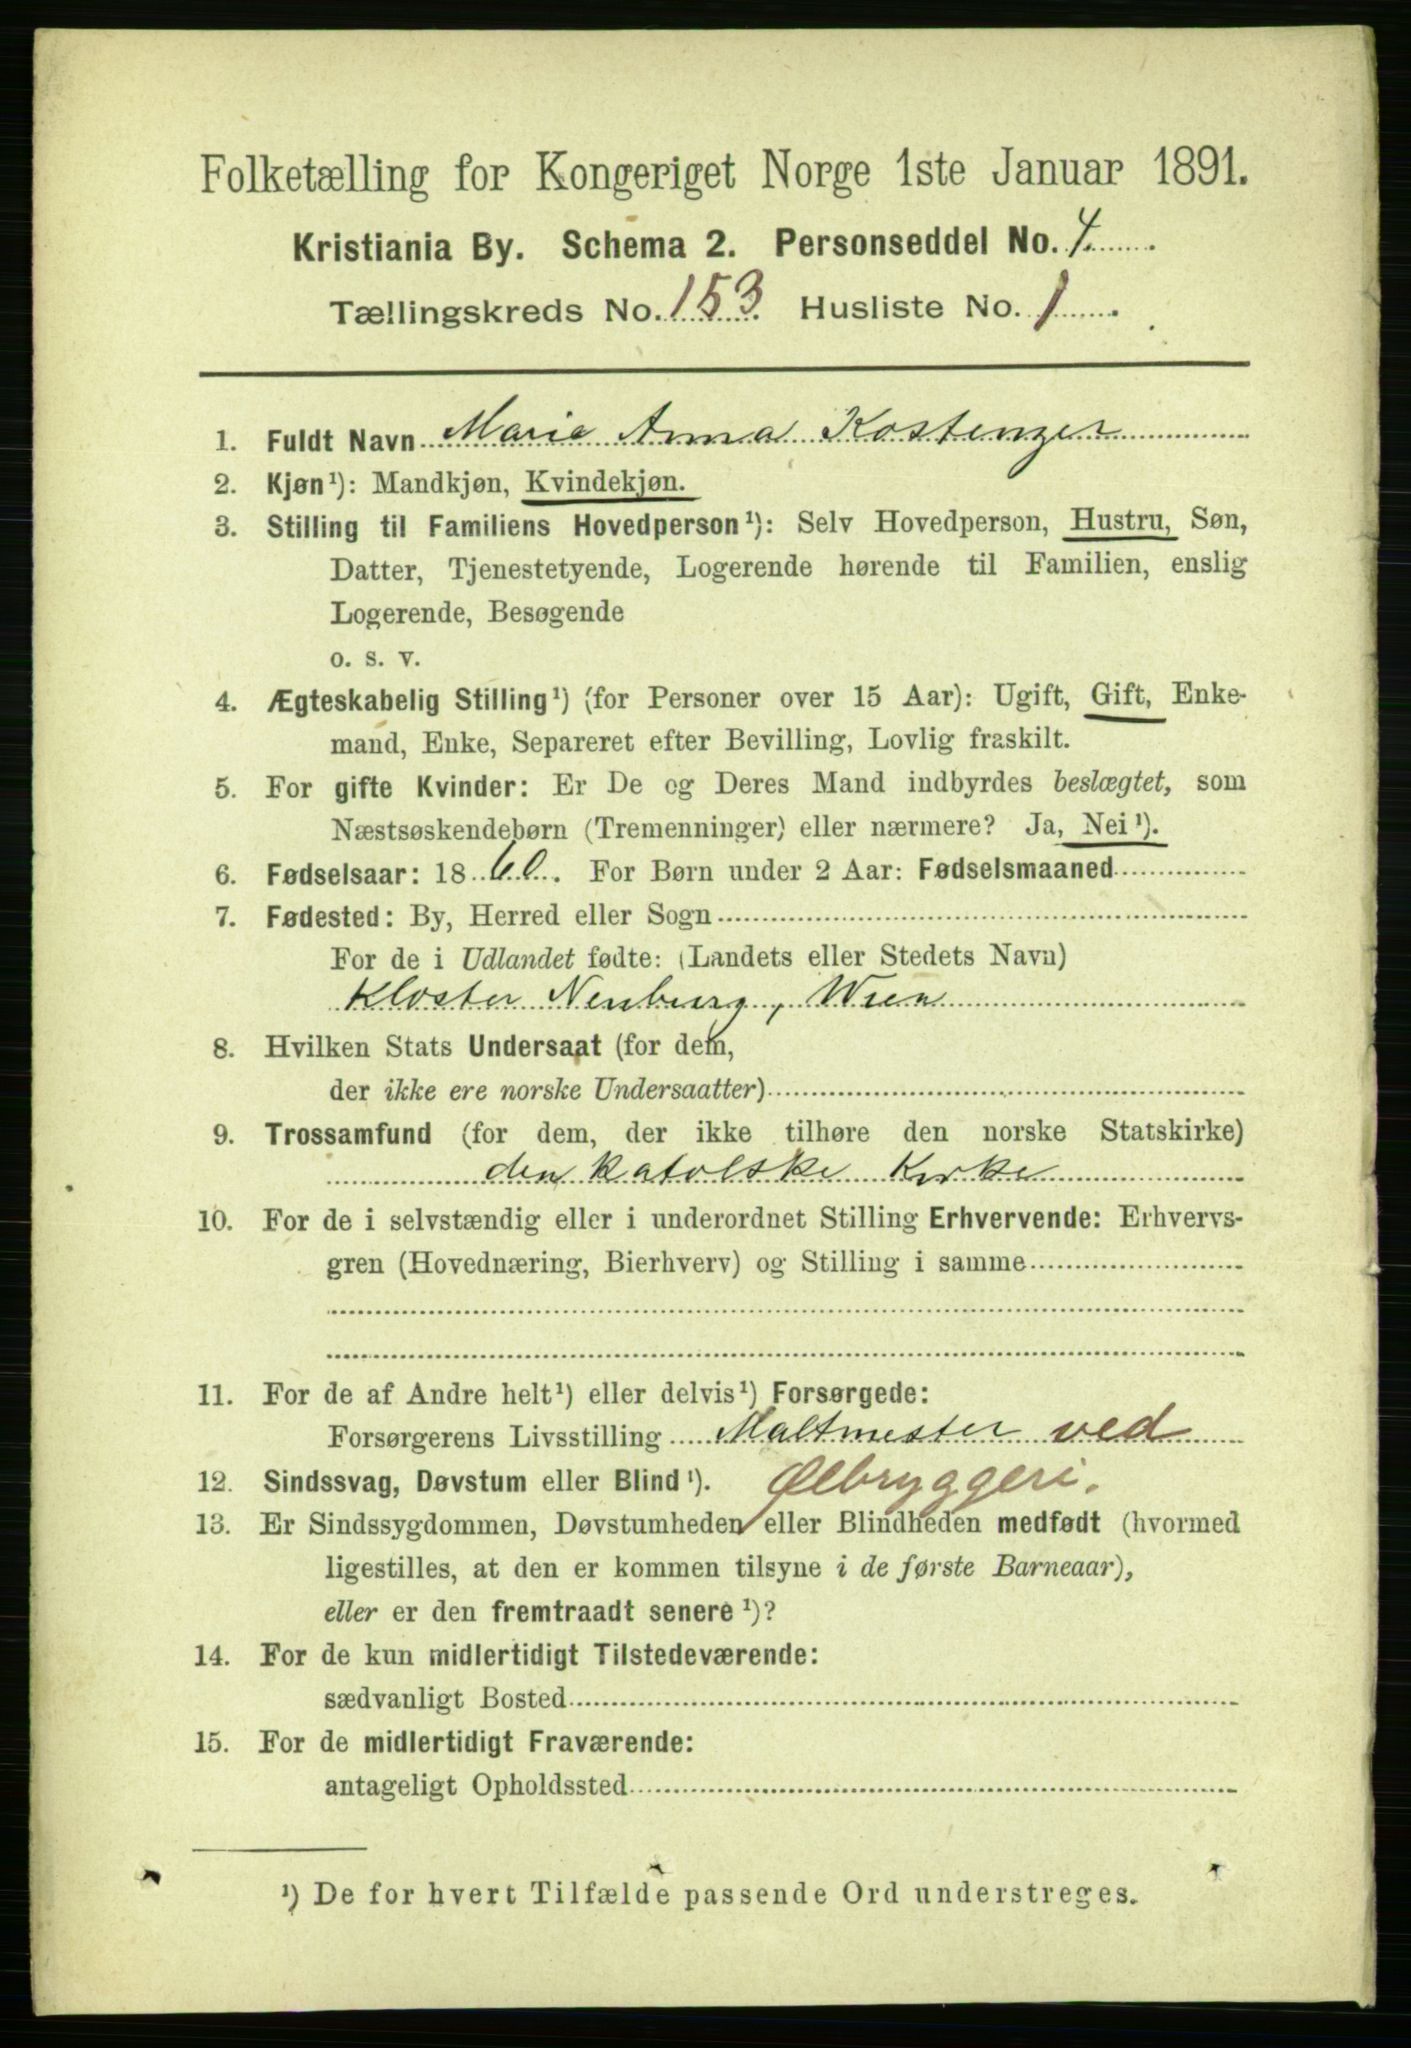 Folketælling for Kongeriget Norge 1ste Januar 1891.
Kristiania By. Schema 2. Personseddel No. 4
Tællingskreds No. 153 Husliste No. 1
1. Fuldt Navn Marie Anna Kostenzer
2. Kjøn¹): Mandkjøn, Kvindekjøn.
3. Stilling til Familiens Hovedperson¹): Selv Hovedperson, Hustru, Søn,
Datter, Tjenestetyende, Logerende hørende til Familien, enslig
Logerende, Besøgende
o. s. v.
4. Ægteskabelig Stilling¹) (for Personer over 15 Aar): Ugift, Gift, Enke-
mand, Enke, Separeret efter Bevilling, Lovlig fraskilt.
5. For gifte Kvinder: Er De og Deres Mand indbyrdes beslægtet, som
Næstsøskendebørn (Tremenninger) eller nærmere? Ja, Nei¹).
6. Fødselsaar: 1860. For Børn under 2 Aar: Fødselsmaaned
7. Fødested: By, Herred eller Sogn
For de i Udlandet fødte: (Landets eller Stedets Navn)
Kloster Neuburg, Wien
8. Hvilken Stats Undersaat (for dem,
der ikke ere norske Undersaatter)
9. Trossamfund (for dem, der ikke tilhøre den norske Statskirke)
den katolske Kirke
10. For de i selvstændig eller i underordnet Stilling Erhvervende: Erhvervs-
gren (Hovednæring, Bierhverv) og Stilling i samme
11. For de af Andre helt¹) eller delvis¹) Forsørgede:
Forsørgerens Livsstilling Maltmester ved
12. Sindssvag, Døvstum eller Blind¹). Ølbryggeri.
13. Er Sindssygdommen, Døvstumheden eller Blindheden medfødt (hvormed
ligestilles, at den er kommen tilsyne i de første Barneaar),
eller er den fremtraadt senere¹)?
14. For de kun midlertidigt Tilstedeværende:
sædvanligt Bosted
15. For de midlertidigt Fraværende:
antageligt Opholdssted
¹) De for hvert Tilfælde passende Ord understreges.